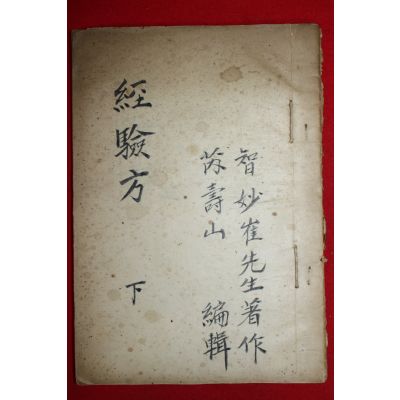 智妙崔先生著作
壽山 編輯
經驗方 下